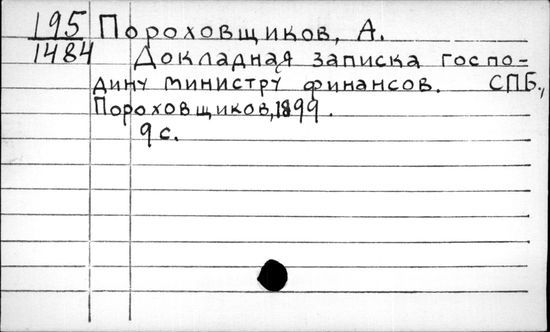 195 Пороховщиков, А.
1484 Докладная записка госпо-
дину министру финансов. СПБ.,
Пороховщиков, 1899.
9 с.